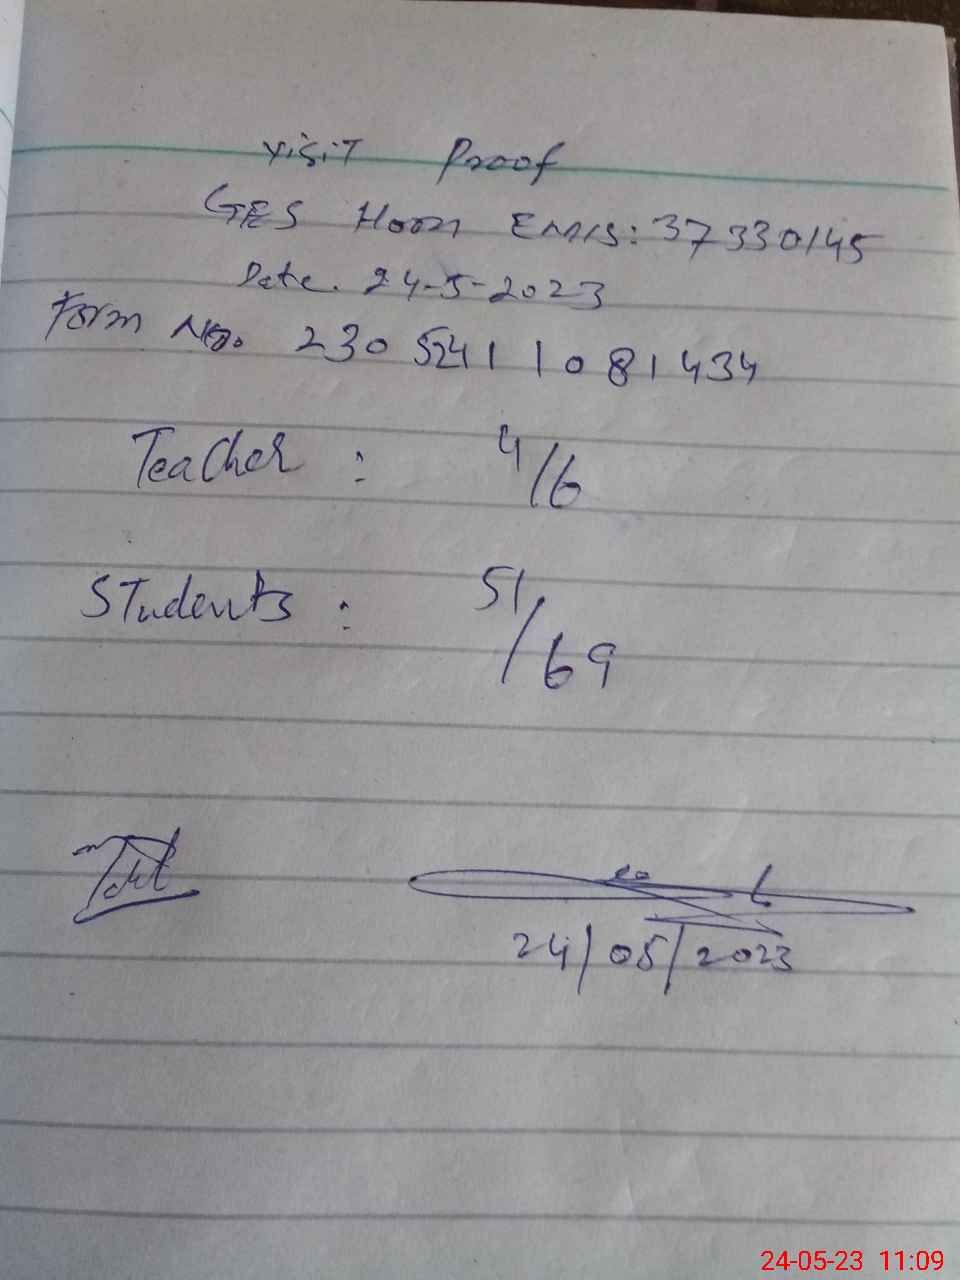 Visit Proof
GES Hoon EMIS: 37330145
Date. 24-5-2023
Form No. 23052411081434
Teacher : 4/6
Students : 51/69
24/05/2023
24-05-23 11:09